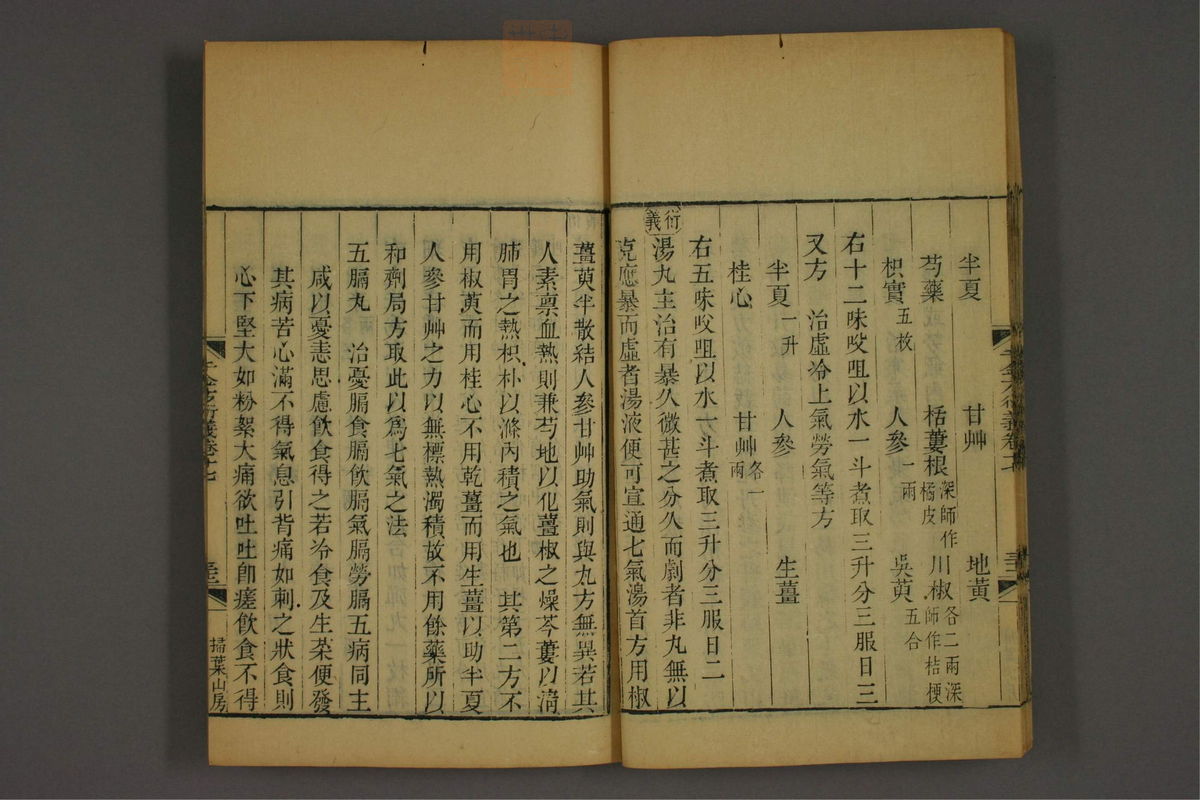 半夏 甘艸 地黃
芍藥 栝蔞根 深師作橘皮 川椒 各二兩深師作桔梗
枳實 五枚 人參 一兩 吳萸 五合
右十二味㕮咀以水一斗煮取三升分三服日三
又方 治虛冷上氣勞氣等方
半夏 一升 人參 生薑
桂心 甘艸 各一兩
右五味㕮咀以水一斗煮取三升分三服日二
衍義
湯丸主治有暴久微甚之分久而劇者非丸無以
克應暴而虛者湯液便可宣通七氣湯首方用椒
薑萸半散結人參甘艸助氣則與丸方無異若其
人素禀血熱則兼芍地以化薑椒之燥芩蔞以淸
肺胃之熱枳朴以滌內積之氣也 其第二方不
用椒萸而用桂心不用乾薑而用生薑以助半夏
人參甘艸之力以無標熱濁積故不用餘藥所以
和劑局方取此以爲七氣之法
五膈丸 治憂膈食膈飮膈氣膈勞膈五病同主
咸以憂恚思慮飮食得之若冷食及生菜便發
其病苦心滿不得氣息引背痛如刺之狀食則
心下堅大如粉絮大痛欲吐吐卽瘥飮食不得
千金方衍義卷十七
掃葉山房